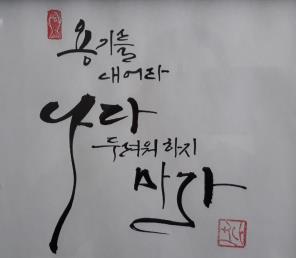 용기를
내어라
나다
두려워하지
마라